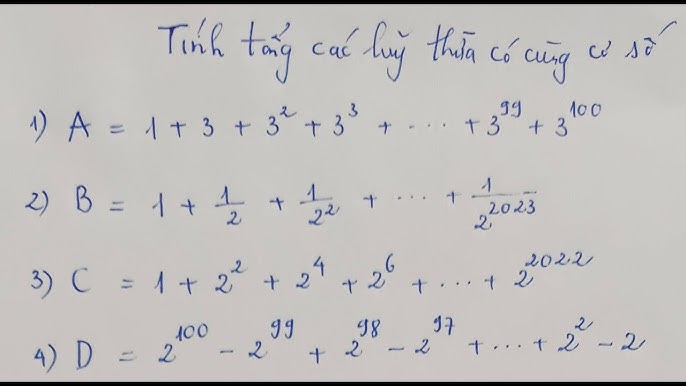 Tính tổng các luỹ thừa có cùng cơ số
1) A = 1 + 3 + 3² + 3³ + ... + 3⁹⁹ + 3¹⁰⁰
2) B = 1 + 1/2 + 1/2² + ... + 1/2²⁰²³
3) C = 1 + 2² + 2⁴ + 2⁶ + ... + 2²⁰²²
4) D = 2¹⁰⁰ - 2⁹⁹ + 2⁹⁸ - 2⁹⁷ + ... + 2² - 2